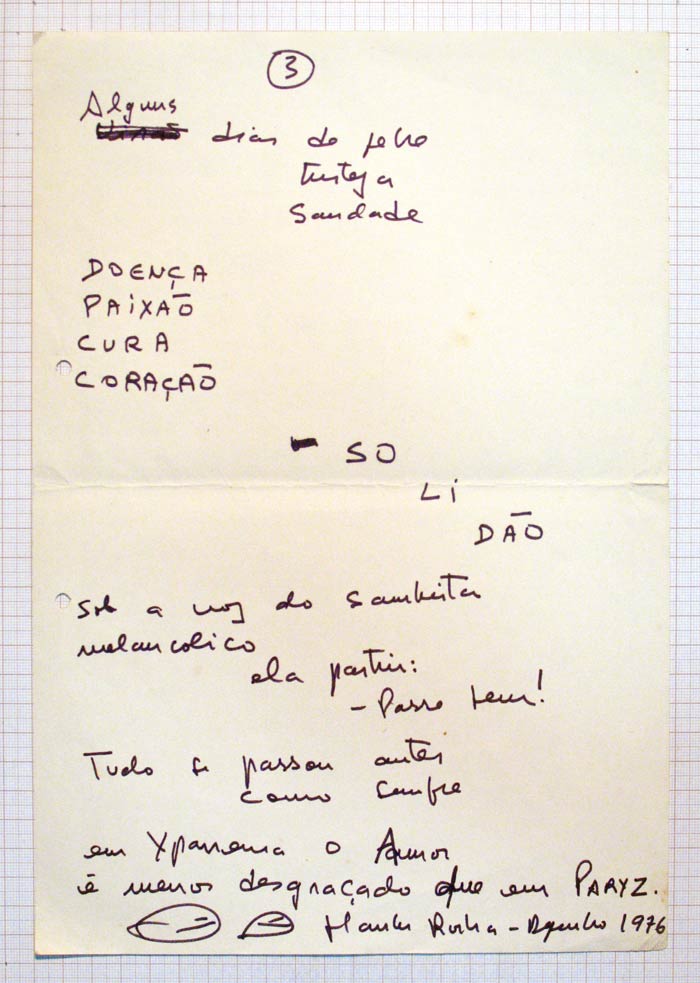 3
Alguns
dias de
tristeza
saudade
DOENÇA
PAIXÃO
CURA
CORAÇÃO
- SO
Li
DÃO
Sob a voz do sambista
melancolico
ela partiu:
- Passe bem!
Tudo se passou antes
como sempre
em Ypanema o Amor
é menos desgraçado que em PARYZ.
Rocha - 1976